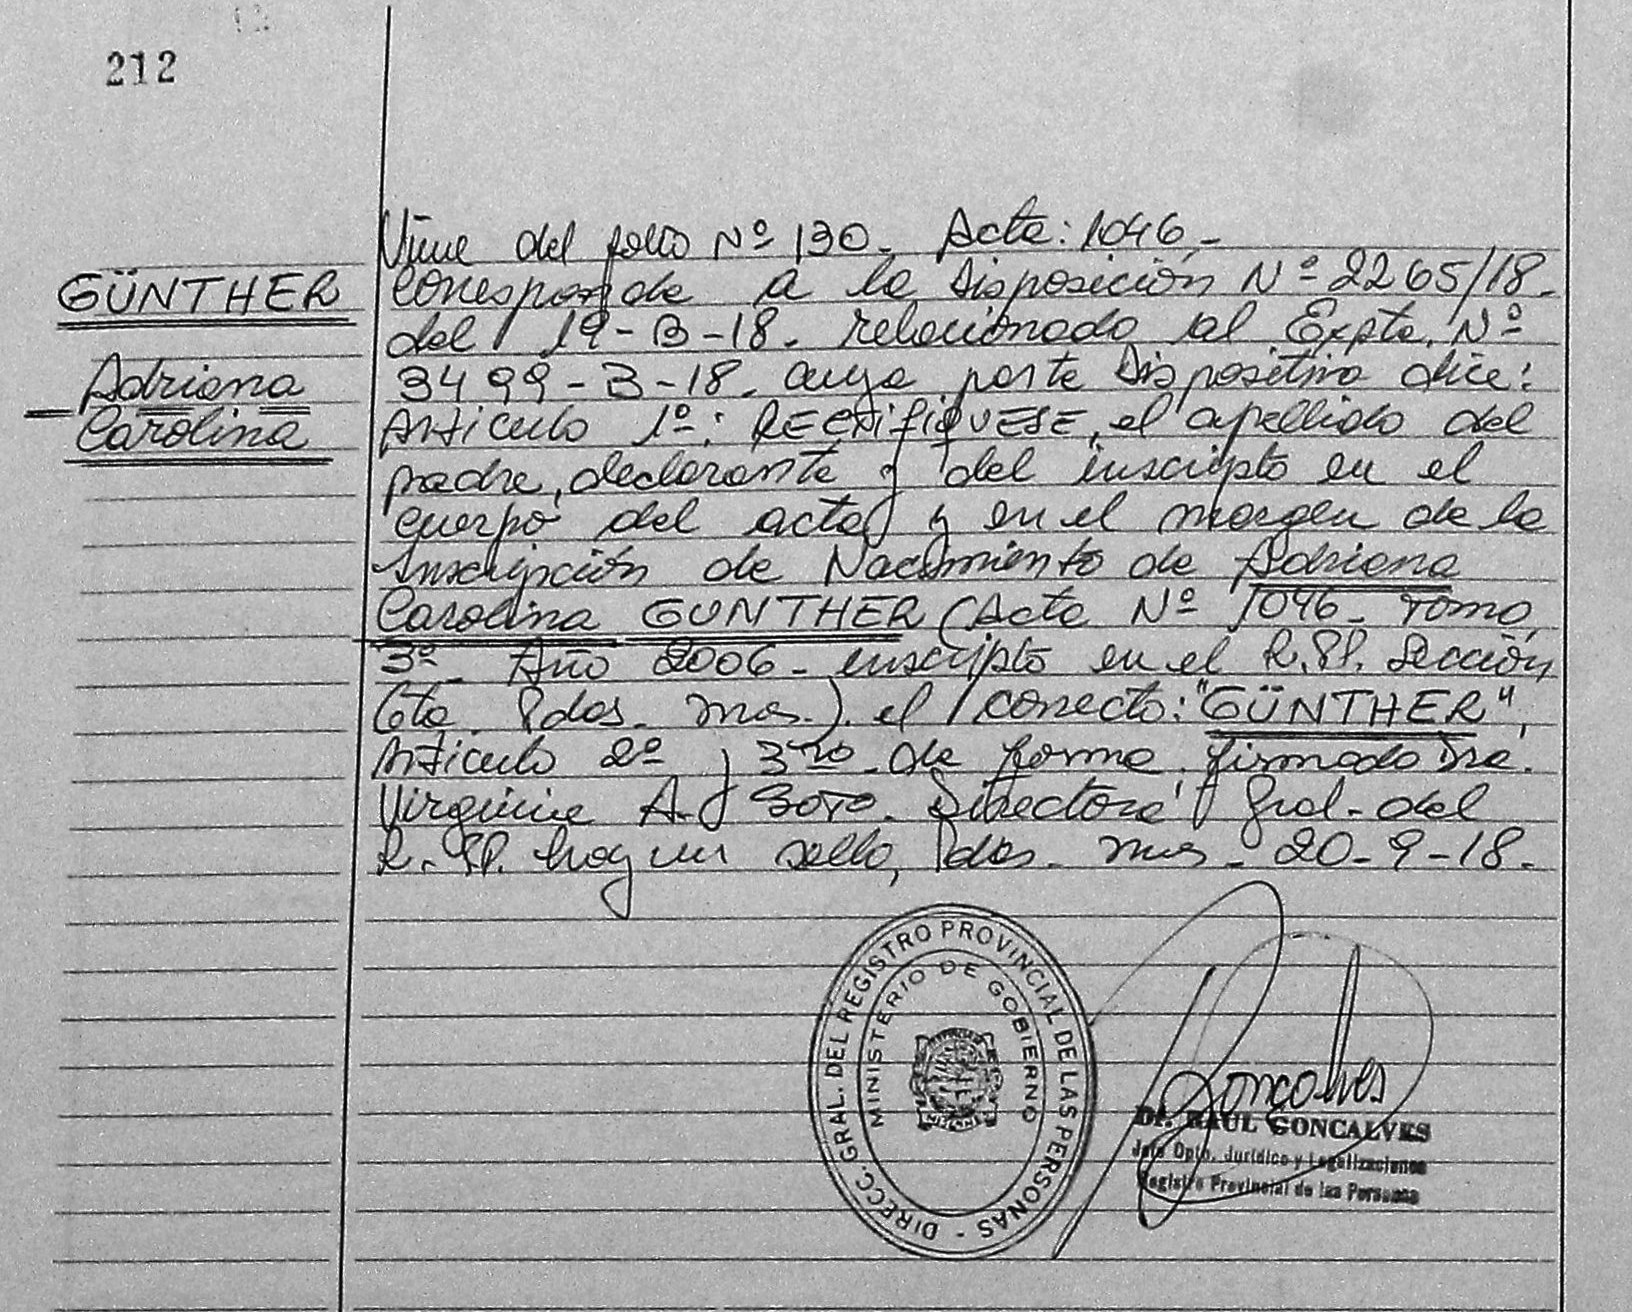 212
GÜNTHER
Adriana
Carolina
Viene del folio Nº 130. Acta: 1046.-
Corresponde a la Disposición Nº 2265/18.
del 19-B-18. relacionado al Expte. Nº
3499-B-18. cuya parte Dispositiva dice:
Articulo 1º: RECTIFIQUESE, el apellido del
padre, declarante y del inscripto en el
cuerpo del acta y en el margen de la
Inscripción de Nacimiento de Adriana
Carolina GUNTHER (Acta Nº 1046- Tomo
3º- Año 2006- inscripto en el R.PP. Sección
6ta Pdas. Mnes.). el correcto: "GÜNTHER",
Articulo 2º y 3ro. de forma. firmado Dra.
Virginia A. SOTO. Directora Gral. del
R.PP. hay un sello, Pdas. Mnes- 20-9-18.
DIRECC. GRAL. DEL REGISTRO PROVINCIAL DE LAS PERSONAS -
MINISTERIO DE GOBIERNO
Goncalves
Dr. RAUL GONCALVES
Jefe Dpto. Jurídico y Legalizaciones
Registro Provincial de las Personas